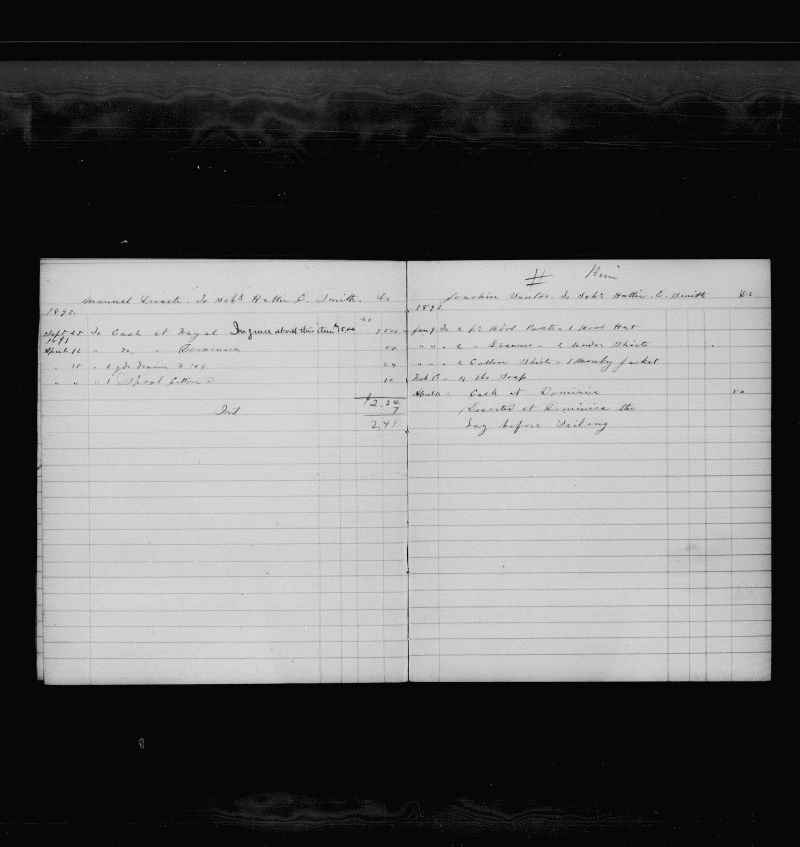 Manuel To Schr Hattie E. Smith. Dr
1892.
Sept 25 To Cash at Inquire about this item $15.00 1.50
1893
April 12 " do " Dominica 50
" 15 " 2 yds Denim 24
" " " 1 Spool Cotton 10
$2.34
Int 7
2.41
Run
Joachim To Schr Hattie E. Smith Dr
1893.
Jany To 2 pr Wool Pants 1 Wool Hat
" " " 2 " Drawers " 2 Under Shirts
" " " 2 Cotton Shirts " 1 Monkey Jacket
Feb " lbs Soap
April " Cash at Dominica 50
Deserted at Dominica the
day before Sailing